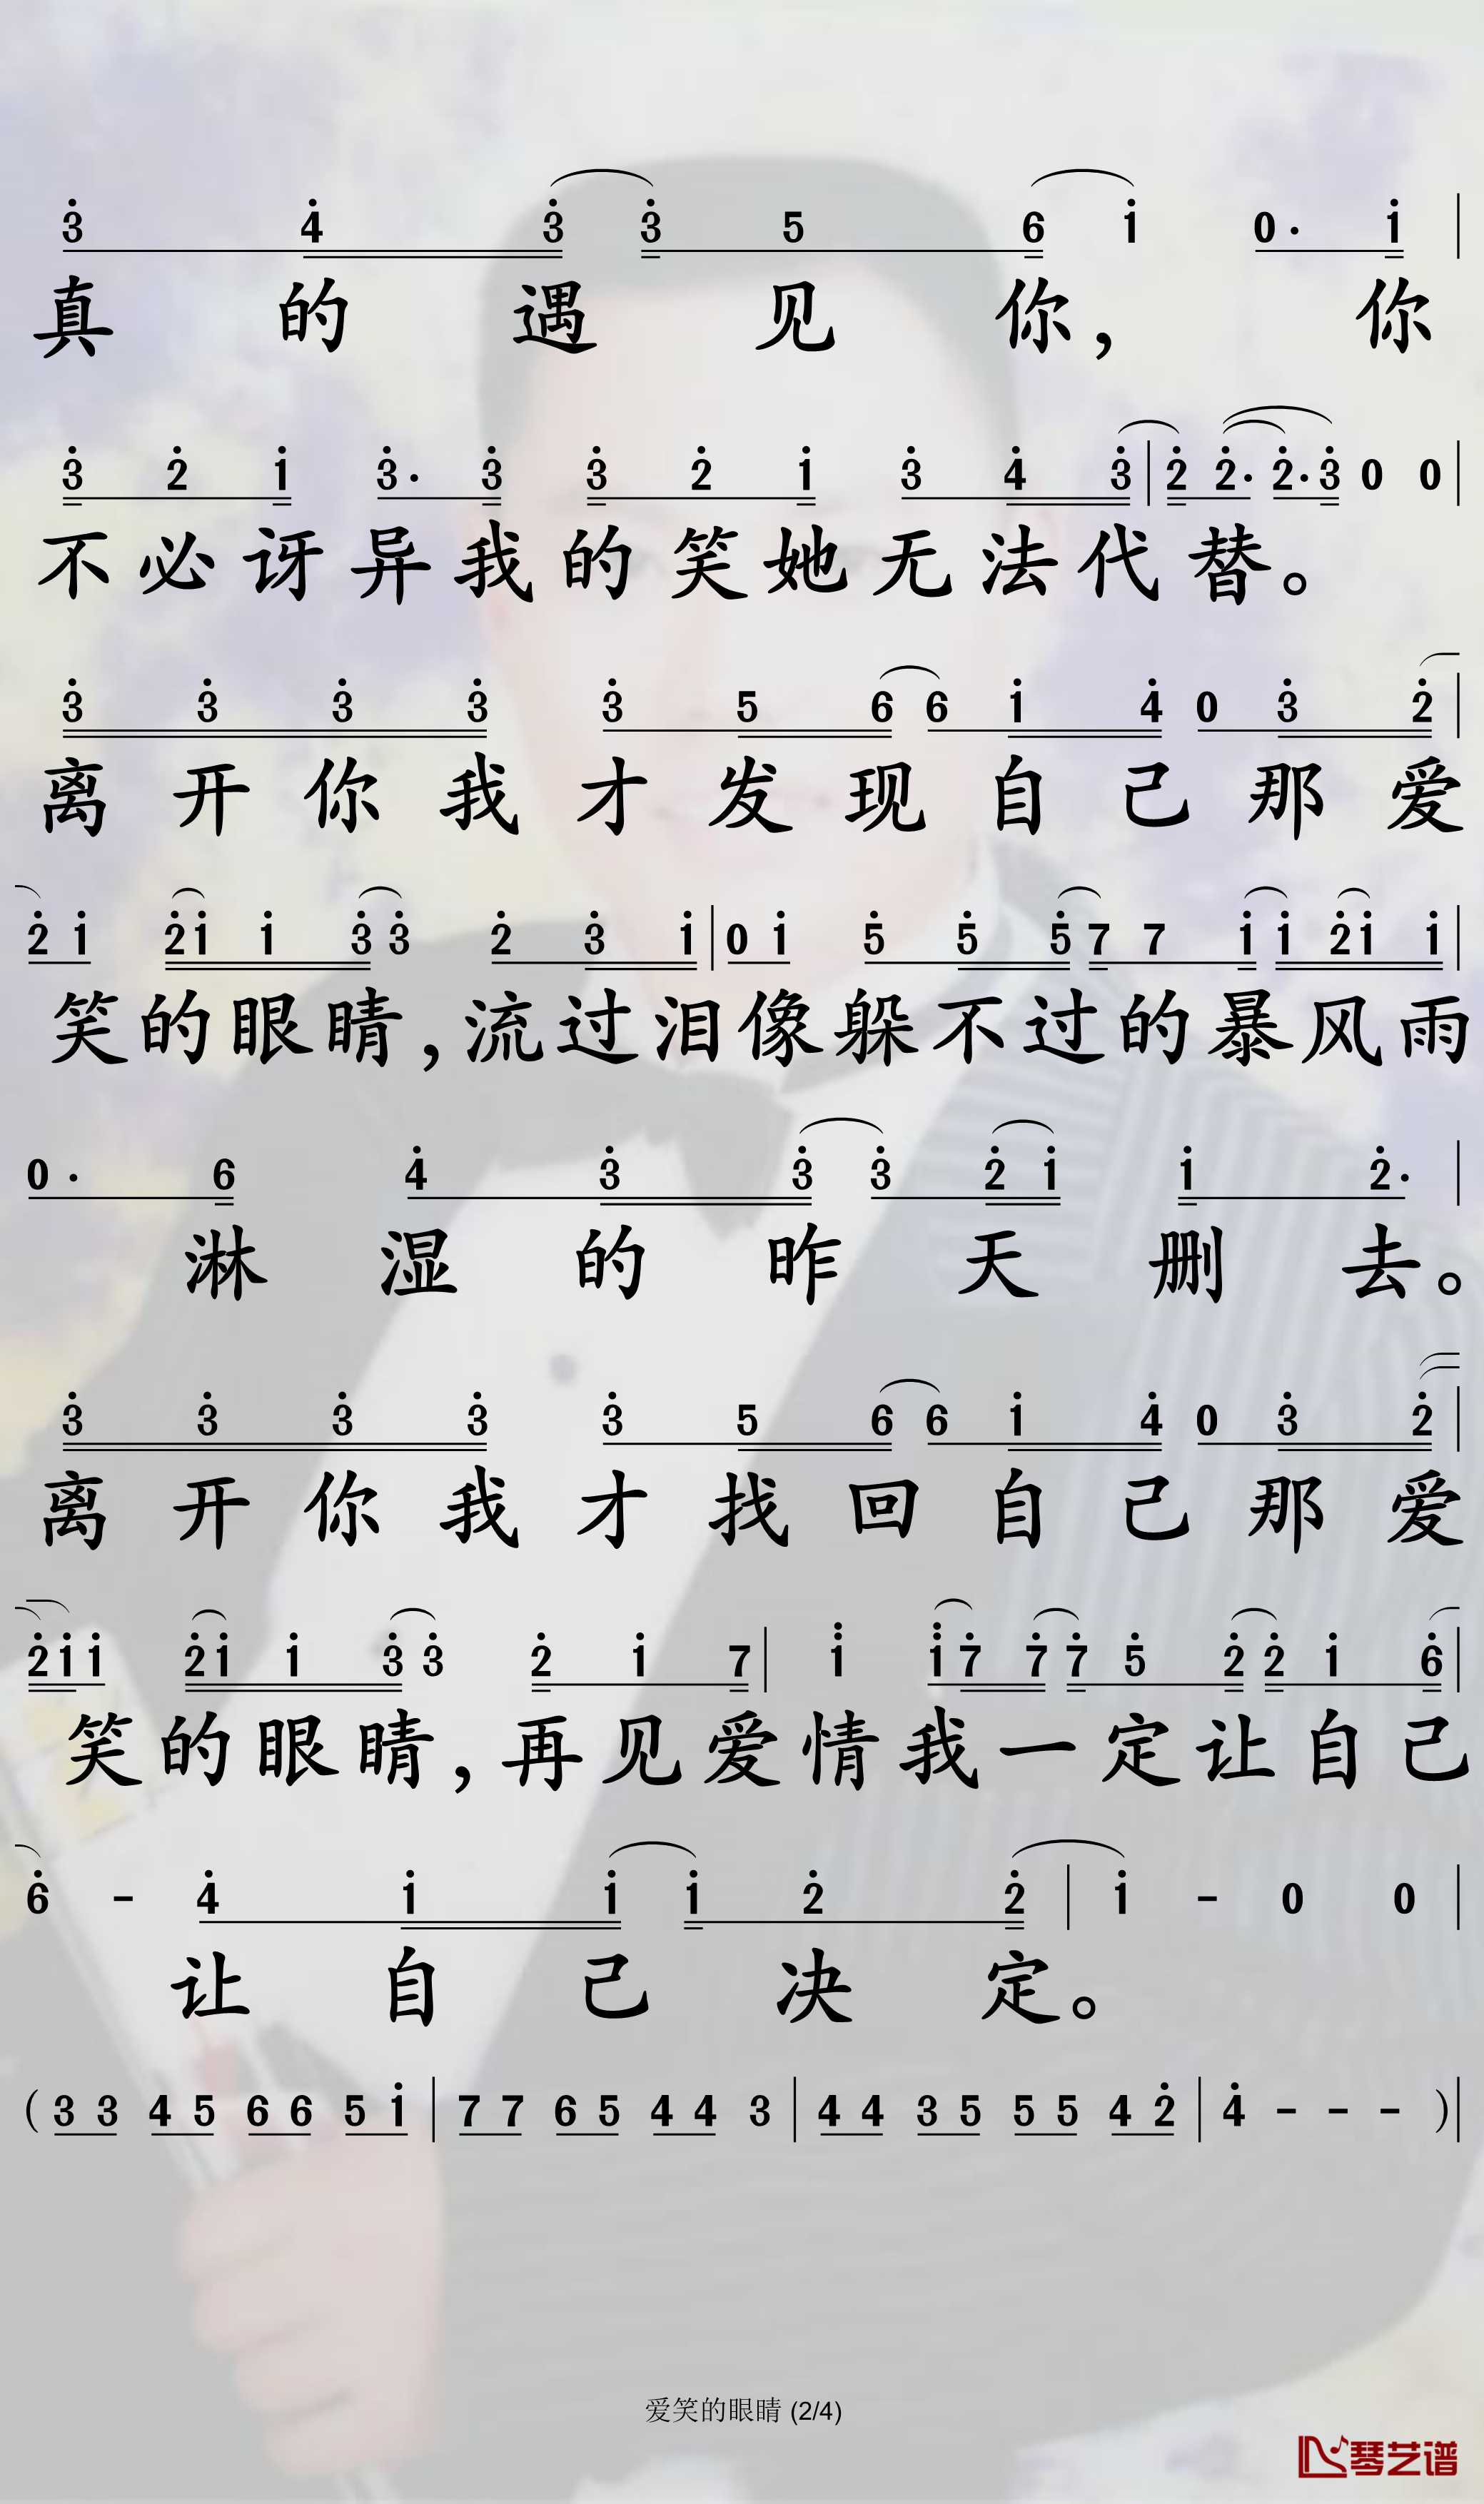 3̇ 4̇ 3̇ 3̇ 5 6 1̇ 0· 1̇ |
真的遇见你，你
3̇ 2̇ 1̇ 3̇· 3̇ 3̇ 2̇ 1̇ 3̇ 4̇ 3̇ | 2̇ 2̇· 2̇· 3̇ 0 0 |
不必讶异我的笑她无法代替。
3̇ 3̇ 3̇ 3̇ 3̇ 5 6 6 1̇ 4̇ 0 3̇ 2̇ |
离开你我才发现自己那爱
2̇ 1̇ 2̇ 1̇ 1̇ 3̇ 3̇ 2̇ 3̇ 1̇ | 0 1̇ 5̇ 5̇ 5̇ 7 7 1̇ 1̇ 2̇ 1̇ 1̇ |
笑的眼睛，流过泪像躲不过的暴风雨
0· 6 4̇ 3̇ 3̇ 3̇ 2̇ 1̇ 1̇ 2̇· |
淋湿的昨天删去。
3̇ 3̇ 3̇ 3̇ 3̇ 5 6 6 1̇ 4̇ 0 3̇ 2̇ |
离开你我才找回自己那爱
2̇ 1̇ 1̇ 2̇ 1̇ 1̇ 3̇ 3̇ 2̇ 1̇ 7 | 1̈ 1̈ 7̇ 7̇ 7̇ 5̇ 2̇ 2̇ 1̇ 6̇ |
笑的眼睛，再见爱情我一定让自己
6̇ - 4̇ 1̇ 1̇ 1̇ 2̇ 2̇ | 1̇ - 0 0 |
让自己决定。
( 3 3 4 5 6 6 5 1̇ | 7 7 6 5 4 4 3 | 4 4 3 5 5 5 4 2̇ | 4̇ - - - ) |
爱笑的眼睛 (2/4)
琴艺谱